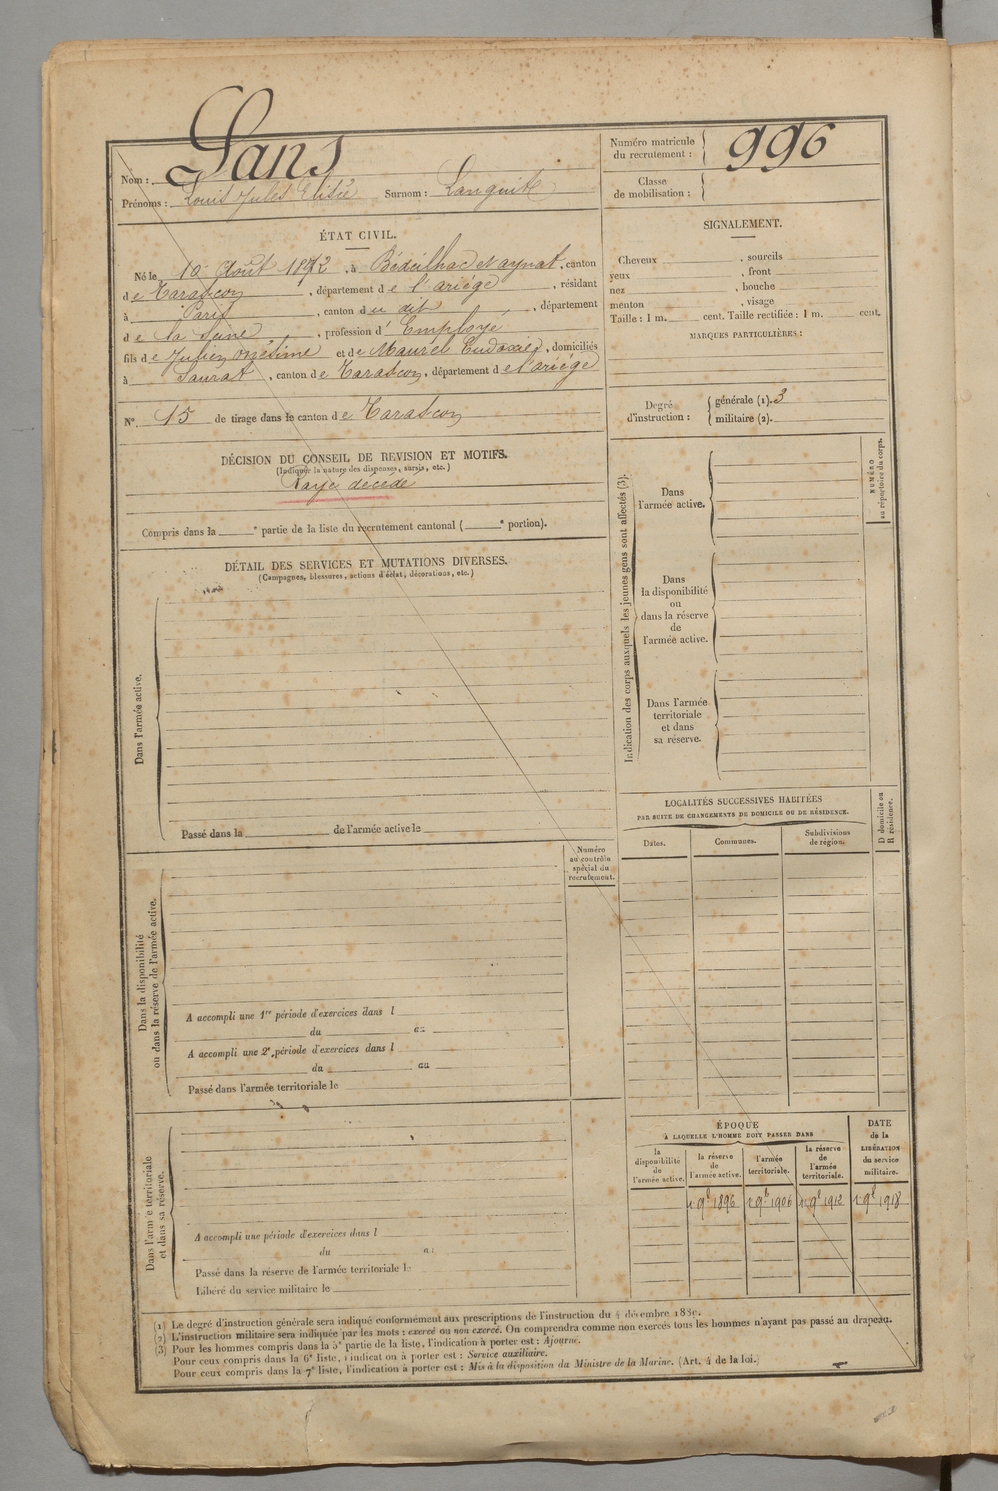 Nom : Sans
Prénoms : Louis Jules Elisée Surnom : Languit
Numéro matricule du recrutement : 996
Classe de mobilisation :
ÉTAT CIVIL.
Né le 10 Août 1872, à Bédeilhac et aynat, canton
de Tarascon, département de l'ariége, résidant
à Paris, canton du dit, département
de la Seine, profession d' Employé
fils de Julien onésime et de Maurel Eudoxie, domiciliés
à Saurat, canton de Tarascon, département de l'ariége
N° 15 de tirage dans le canton de Tarascon
DÉCISION DU CONSEIL DE REVISION ET MOTIFS.
(Indiquer la nature des dispenses, sursis, etc.)
Rayé décédé
Compris dans la e partie de la liste du recrutement cantonal ( e portion).
DÉTAIL DES SERVICES ET MUTATIONS DIVERSES.
(Campagnes, blessures, actions d'éclat, décorations, etc.)
Dans l'armée active.
Passé dans la de l'armée active le
Numéro
au contrôle
spécial du
recrutement.
Dans la disponibilité
ou dans la réserve de l'armée active.
A accompli une 1re période d'exercices dans l
du au
A accompli une 2e période d'exercices dans l
du au
Passé dans l'armée territoriale le
Dans l'armée territoriale
et dans sa réserve.
A accompli une période d'exercices dans l
du au
Passé dans la réserve de l'armée territoriale le
Libéré du service militaire le
SIGNALEMENT.
Cheveux , sourcils
yeux , front
nez , bouche
menton , visage
Taille : 1 m. cent. Taille rectifiée : 1 m. cent.
MARQUES PARTICULIÈRES :
Degré d'instruction :
générale (1). 3
militaire (2).
Indication des corps auxquels les jeunes gens sont affectés (3).
NUMÉRO
au répertoire du corps.
Dans
l'armée active.
Dans
la disponibilité
ou
dans la réserve
de
l'armée active.
Dans l'armée
territoriale
et dans
sa réserve.
LOCALITÉS SUCCESSIVES HABITÉES
PAR SUITE DE CHANGEMENTS DE DOMICILE OU DE RÉSIDENCE.
Dates. Communes. Subdivisions de région.
D domicile ou
R résidence.
ÉPOQUE
À LAQUELLE L'HOMME DOIT PASSER DANS
la disponibilité de l'armée active.
la réserve de l'armée active.
l'armée territoriale.
la réserve de l'armée territoriale.
DATE de la LIBÉRATION du service militaire.
1896 1906 1912 1918
(1) Le degré d'instruction générale sera indiqué conformément aux prescriptions de l'instruction du 4 décembre 1889.
(2) L'instruction militaire sera indiquée par les mots : exercé ou non exercé. On comprendra comme non exercés tous les hommes n'ayant pas passé au drapeau.
(3) Pour les hommes compris dans la 5e partie de la liste, l'indication à porter est : Ajourné.
Pour ceux compris dans la 6e liste, l'indication à porter est : Service auxiliaire.
Pour ceux compris dans la 7e liste, l'indication à porter est : Mis à la disposition du Ministre de la Marine. (Art. 4 de la loi.)